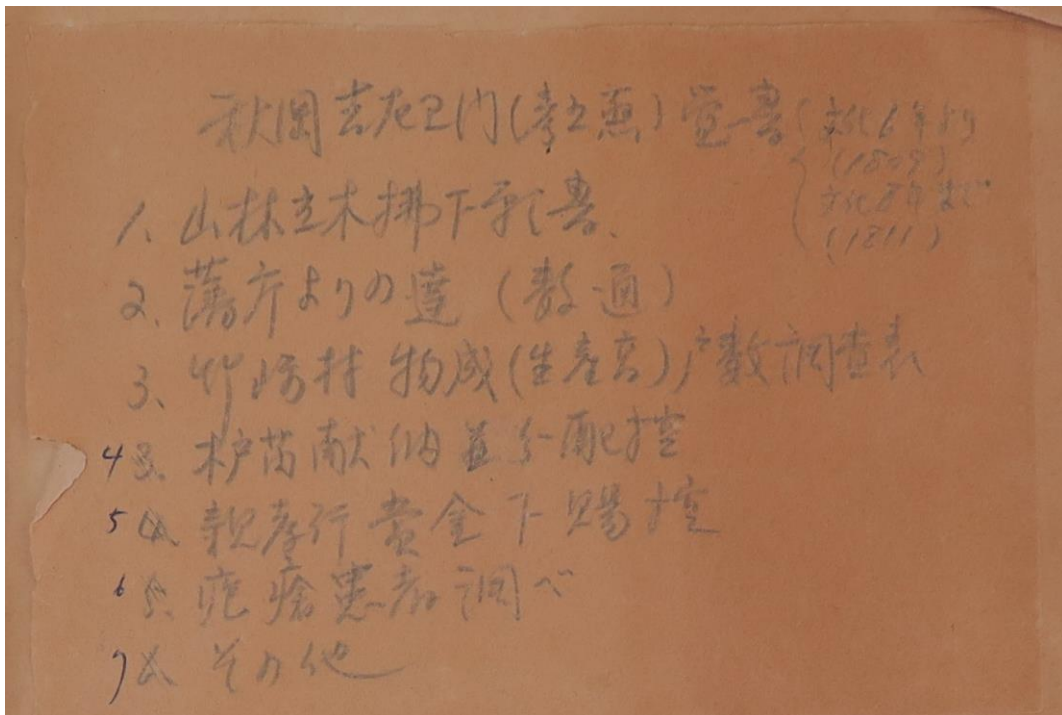 秋岡吉右卫门(孝之蕙)覚書
文化6年より
(1809)
文化8年まで
(1811)
1、山林立木拂下願書、
2、藩庁よりの達(数通)
3、竹崎村物成(生産高)戸数調査表
4 3、枦苗献納並分配控
5 4、親孝行賞金下賜控
6 5、疱瘡患者調べ
7 6、その他